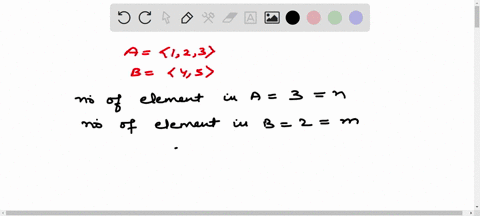 A = <1,2,3>
B = <4,5>
no of element in A = 3 = n
no of element in B = 2 = m